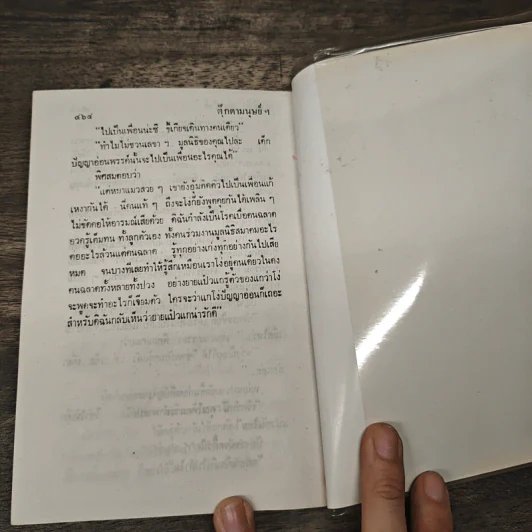 ๔๖๔ ตุ๊กตามนุษย์ ฯ
"ไปเป็นเพื่อนน่ะซี ขี้เกียจเดินทางคนเดียว"
"ทำไมไม่ชวนเลขา ฯ มูลนิธิของคุณไปล่ะ เด็ก
ปัญญาอ่อนพรรค์นั้นจะไปเป็นเพื่อนอะไรคุณได้"
พิศสมตอบว่า
"แค่หมาแมวสวย ๆ เขายังอุ้มติดตัวไปเป็นเพื่อนแก้
เหงากันได้ นี่คนแท้ ๆ ถึงจะโง่ก็ยังพูดคุยกันได้เพลิน ๆ
ไม่ขัดคอให้อารมณ์เสียด้วย ดิฉันกำลังเป็นโรคเบื่อคนฉลาด
อวดรู้เต็มทน ทั้งลูกตัวเอง ทั้งคนร่วมงานมูลนิธิสมาคมอะไร
ต่ออะไรล้วนแต่คนฉลาด รู้ทุกอย่างเก่งทุกอย่างกันไปเสีย
หมด จนบางทีเลยทำให้รู้สึกเหมือนเราโง่อยู่คนเดียวในดง
คนฉลาดทั้งหลายทั้งปวง อย่างยายแป้วแกรู้ตัวของแกว่าโง่
จะพูดจะทำอะไรก็เจียมตัว ใครจะว่าแกโง่ปัญญาอ่อนก็เถอะ
สำหรับดิฉันกลับเห็นว่ายายแป้วแกน่ารักดี"